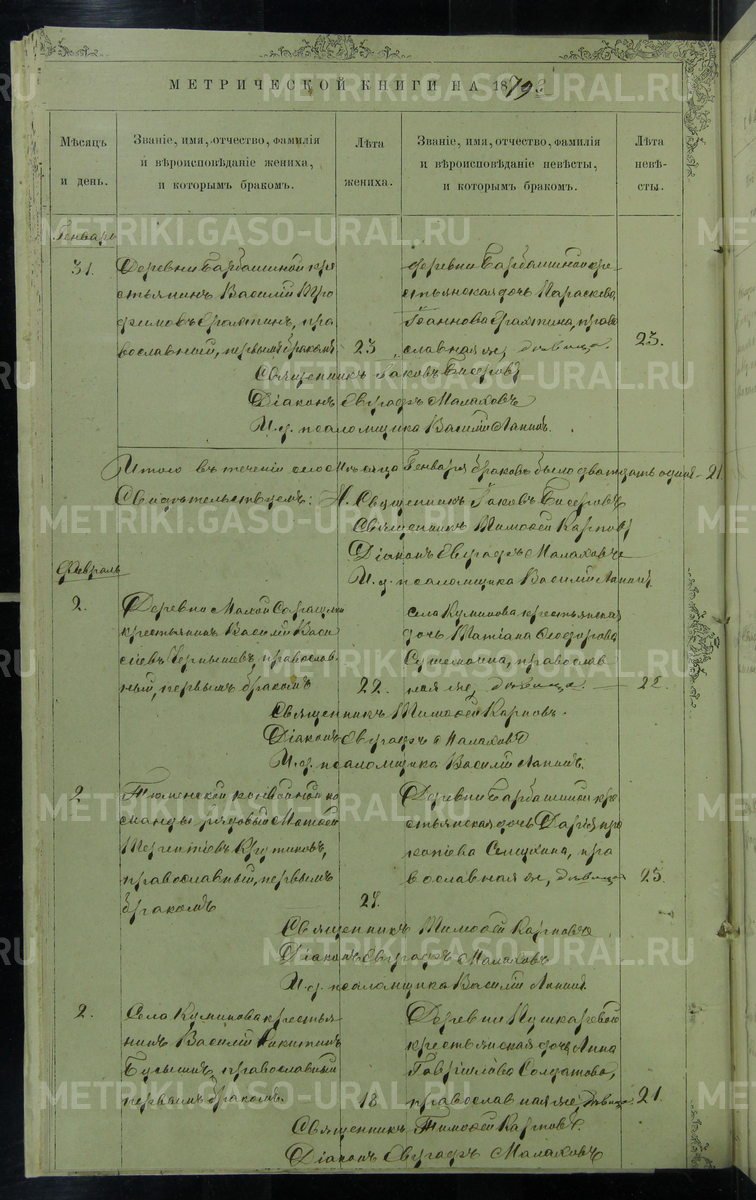 МЕТРИЧЕСКОЙ КНИГИ НА 1879
Мѣсяцъ и день.
Званіе, имя, отчество, фамилія и вѣроисповѣданіе жениха, и которымъ бракомъ.
Лѣта жениха.
Званіе, имя, отчество, фамилія и вѣроисповѣданіе невѣсты, и которымъ бракомъ.
Лѣта невѣ-сты.
Генварь
31. Деревни Барбашиной кре
стьянинъ Василій Тро
фимовъ пра
вославный, первымъ бракомъ
23
деревни Барбашиной кре-
стьянская дочь Параскева
Іоаннова право
славная же, дѣвица.
23.
Священникъ Іаковъ Бисеровъ
Діаконъ Евграфъ Малаховъ
И. д. псаломщика Василій Лапинъ.
Итого въ теченіи сего Мѣсяца Генваря браковъ было двадцать одинъ - 21.
Свидѣтельствуемъ: Священникъ Іаковъ Бисеровъ
Священникъ Тимофей Карповъ
Діаконъ Евграфъ Малаховъ
И. д. псаломщика Василій Лапинъ
Февраль
2. Деревни Малой
крестьянинъ Василій Васи
ліевъ Чернышевъ, православ
ный, первымъ бракомъ
22.
села Куминова крестьянская
дочь Татіана Ѳеодорова
православ
ная же, дѣвица.
22.
Священникъ Тимофей Карповъ.
Діаконъ Евграфъ Малаховъ
И. д. псаломщика Василій Лапинъ.
2 Тюменской конвойной ко
манды рядовый Матфей
Терентіевъ Крутиковъ,
православный, первымъ
бракомъ
27.
Деревни Барбашиной кре
стьянская дочь Дарія про
копіева пра
вославная же, дѣвица
23.
Священникъ Тимофей Карповъ
Діаконъ Евграфъ Малаховъ
И. д. псаломщика Василій Лапинъ.
2. Села Куминова крестья
нинъ Василій Никитинъ
православный
первымъ бракомъ.
18
Деревни Пушкаревой
крестьянская дочь Анна
Гавриилова Солдатова,
православная же, дѣвица
21.
Священникъ Тимофей Карповъ.
Діаконъ Евграфъ Малаховъ
METRIKI.GASO-URAL.RU